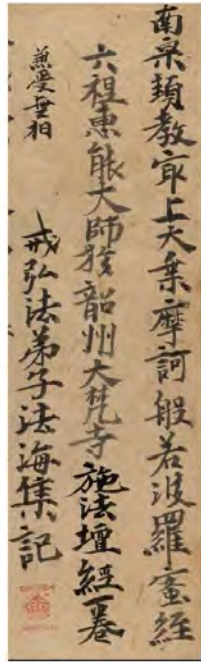 南宗頓教最上大乗摩訶般若波羅蜜経
六祖恵能大師於韶州大梵寺施法壇経一巻
兼受無相
戒弘法弟子法海集記